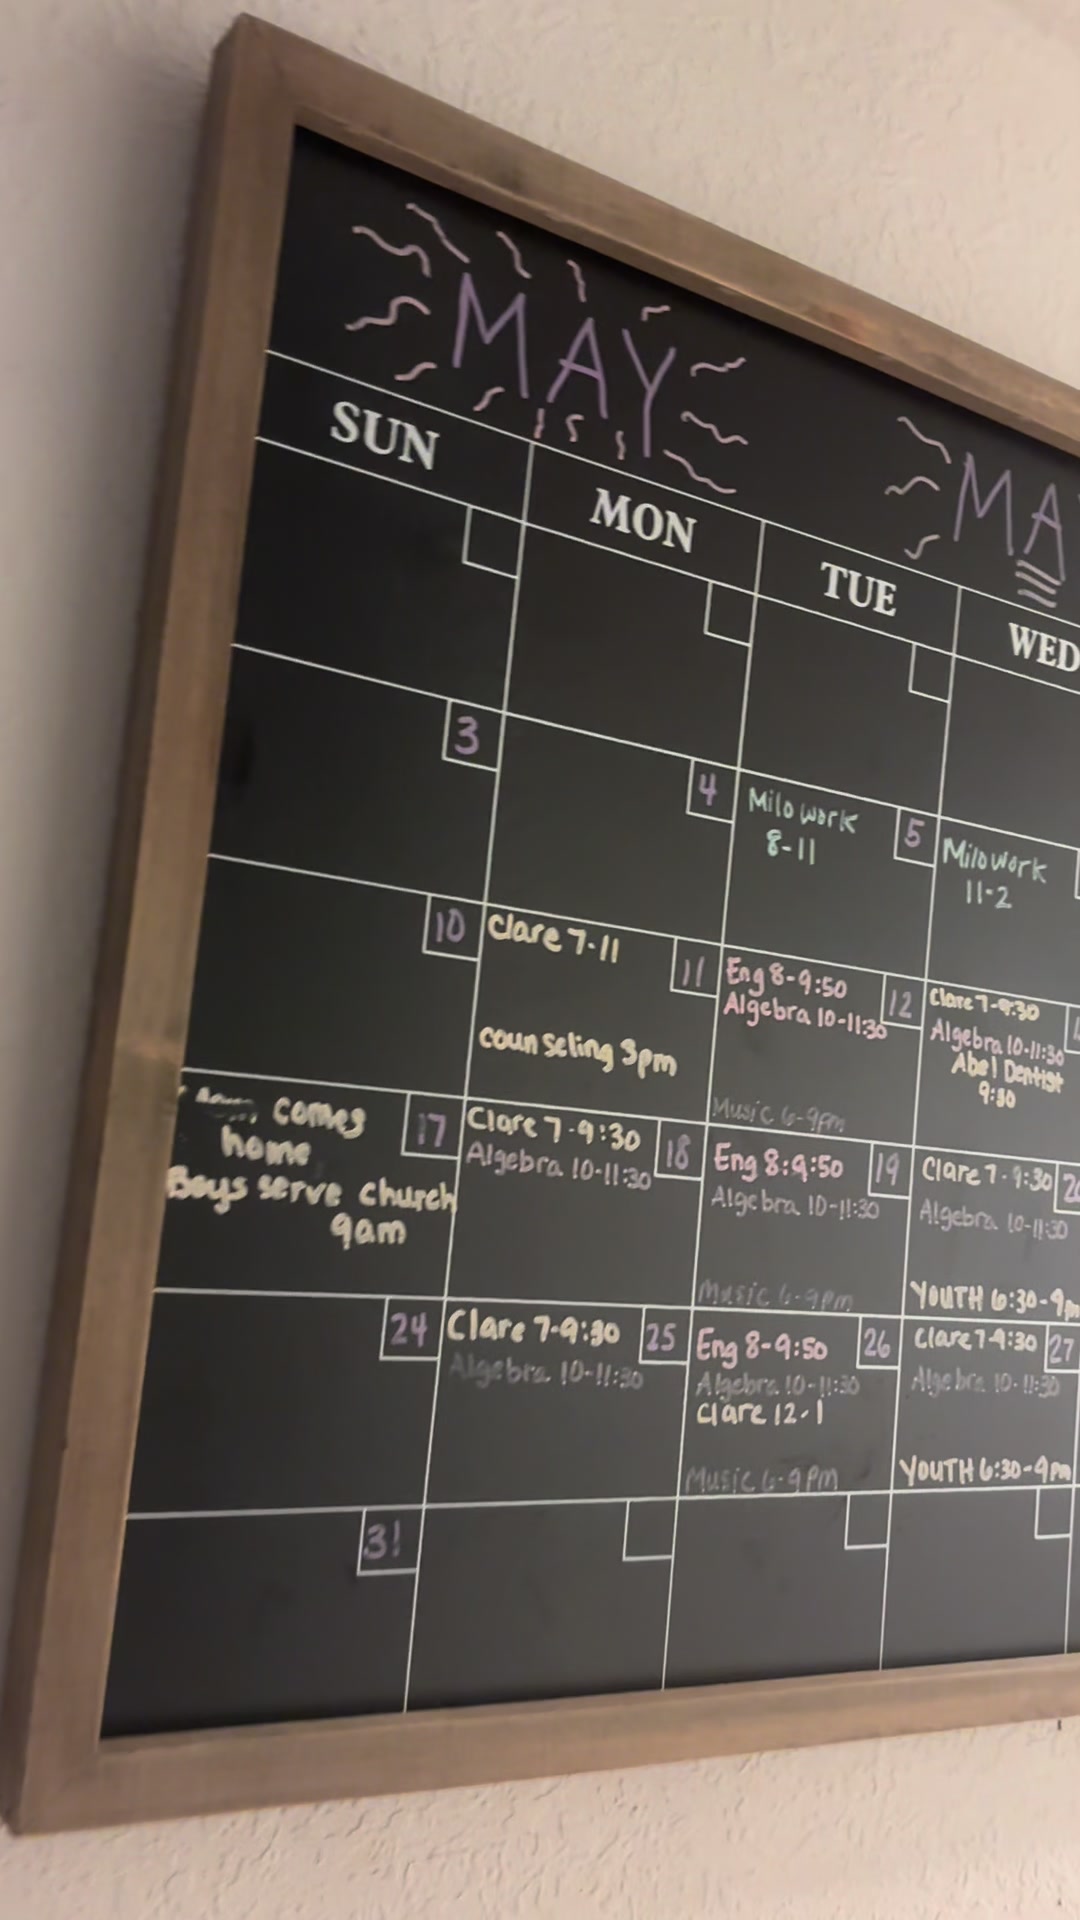 MAY
MA
SUN
MON
TUE
WED
3
4
Milo work
8-11
5
Milo work
11-2
10
Clare 7-11
counseling 3pm
11
Eng 8-9:50
Algebra 10-11:30
Music 6-9pm
12
Clare 7-9:30
Algebra 10-11:30
Abel Dentist
9:30
comes
home
Boys serve church
9am
17
Clare 7-9:30
Algebra 10-11:30
18
Eng 8:9:50
Algebra 10-11:30
Music 6-9pm
19
Clare 7-9:30
Algebra 10-11:30
YOUTH 6:30-9pm
24
Clare 7-9:30
Algebra 10-11:30
25
Eng 8-9:50
Algebra 10-11:30
Clare 12-1
Music 6-9pm
26
Clare 7-9:30
Algebra 10-11:30
YOUTH 6:30-9pm
27
31